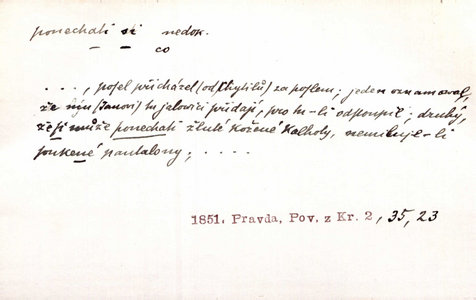 ponechati si nedok.
co
. . . , posel přicházel (od Chytilů) za poslem; jeden oznamoval,
že mu (Janovi) tu jalovici přidají, pro tu-li odstoupil; druhý,
že si může ponechati žluté kožené kalhoty, nemiluje-li
soukené pantalony; . . . .
1851. Pravda, Pov. z Kr. 2, 35, 23